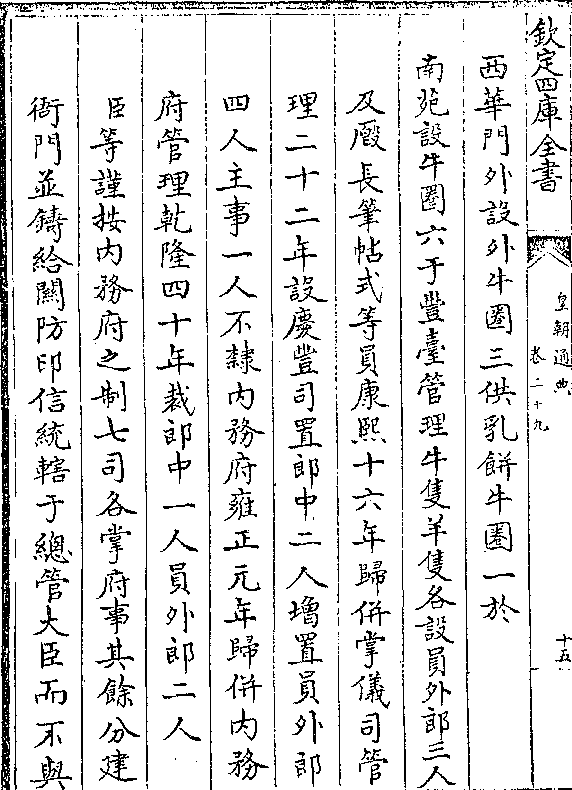 欽定四庫全書
皇朝通典
卷二十九
十五
西華門外設外牛圈三供乳餅牛圈一於
南苑設牛圈六于豐臺管理牛隻羊隻各設員外郎三人
及廐長筆帖式等員康熙十六年歸併掌儀司管
理二十二年設慶豐司置郎中二人增置員外郎
四人主事一人不隸內務府雍正元年歸併內務
府管理乾隆四十年裁郎中一人員外郎二人
臣等謹按內務府之制七司各掌府事其餘分建
衙門並鑄給關防印信統轄于總管大臣而不與